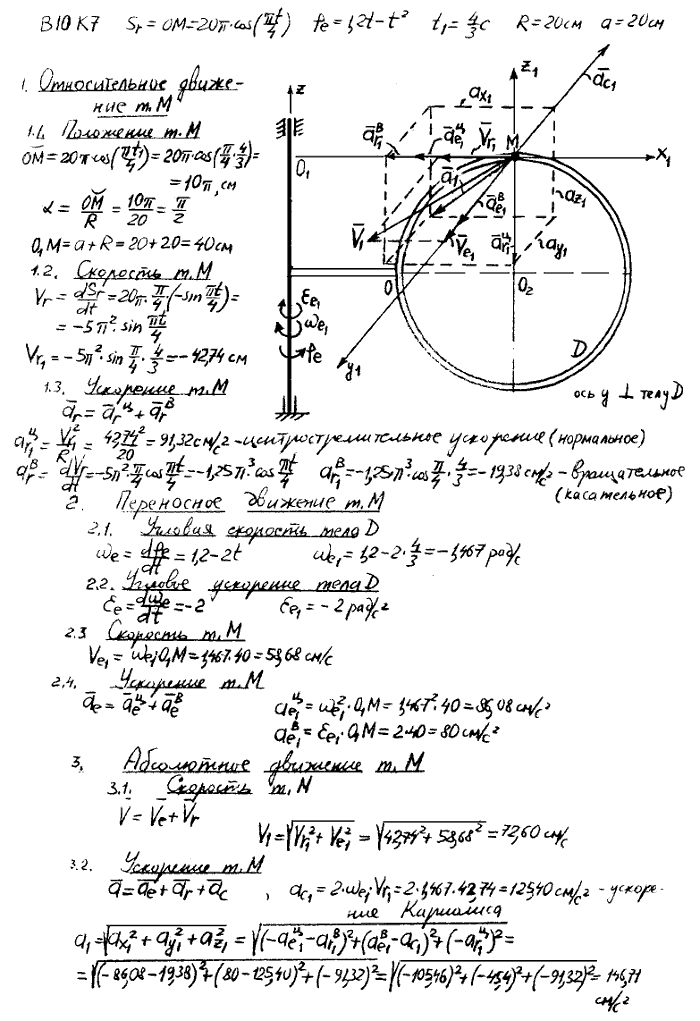 В10 К7 Sr = OM=20π·cos(πt/4) φe=1,2t-t² t₁=4/3 c R=20см a=20см
1. Относительное движе-
ние т.М
1.1. Положение т.М
OM=20π cos(πt₁/4)=20π·cos(π/4·4/3)=
=10π, см
α = OM/R = 10π/20 = π/2
O₁M=a+R=20+20=40см
1.2. Скорость т.М
Vr = dSr/dt =20π·π/4·(-sin πt/4)=
= -5π²·sin πt/4
Vr₁=-5π²·sin π/4·4/3=-42,74 см
1.3. Ускорение т.М
ār=ārᶜ̧ᴴ+ārᴮ
z
z₁
āc₁
ax₁
ār₁ᴮ āe₁ᶜ̧ᴴ V̄r₁ M
O₁ x₁
ā₁ az₁
āe₁ᴮ
V̄₁ V̄e₁ ār₁ц ay₁
O O₂
εe₁
ωe₁
φe
y₁
D
ось y ⊥ телу D
ar₁ц = Vr₁²/R = 42,74²/20 = 91,32 см/с² - центростремительное ускорение (нормальное)
arᴮ = dVr/dt = -5π²·π/4 cos πt/4 = -1,25π³·cos πt/4 ar₁ᴮ=-1,25π³·cos π/4·4/3=-19,38 см/с² - вращательное
(касательное)
2. Переносное движение т.М
2.1. Угловая скорость тела D
ωe = dφe/dt = 1,2-2t ωe₁=1,2-2·4/3=-1,467 рад/с
2.2. Угловое ускорение тела D
εe = dωe/dt = -2 εe₁ = -2 рад/с²
2.3 Скорость т.М
Ve₁ = ωe₁·O₁M=1,467·40=58,68 см/с
2.4. Ускорение т.М
āe = āeц + āeᴮ ae₁ц = ωe₁²·O₁M = 1,467²·40 = 86,08 см/с²
ae₁ᴮ = εe₁·O₁M = 2·40 = 80 см/с²
3. Абсолютное движение т.М
3.1. Скорость т.М
V̄ = V̄e + V̄r
V₁=√(Vr₁²+Ve₁²) = √(42,74²+58,68²) = 72,60 см/с
3.2. Ускорение т.М
ā=āe+ār+āc , ac₁ = 2·ωe₁·Vr₁=2·1,467·42,74=125,40 см/с² - ускоре-
ние Кариолиса
a₁=√(ax₁²+ay₁²+az₁²) = √((-ae₁ц-ar₁ᴮ)²+(ae₁ᴮ-ac₁)²+(-ar₁ц)²) =
=√((-86,08-19,38)²+(80-125,40)²+(-91,32)²)=√((-105,46)²+(-45,4)²+(-91,32)²)=146,71
см/с²